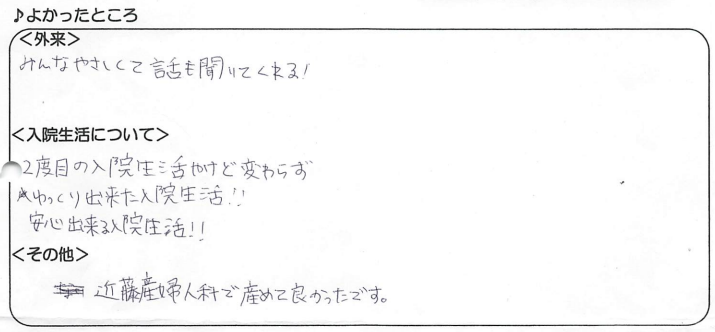 ♪よかったところ
＜外来＞
みんなやさしくて話も聞いてくれる！
＜入院生活について＞
2度目の入院生活だけど変わらず
ゆっくり出来た入院生活！！
安心出来る入院生活！！
＜その他＞
近藤産婦人科で産めて良かったです。